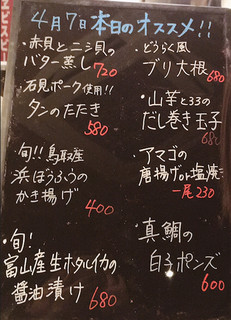 4月7日 本日のオススメ!!
・赤貝とニシ貝の
バター蒸し 720
・石見ポーク使用!!
タンのたたき
580
・旬!! 鳥取産
浜ぼうふうの
かき揚げ
400
・旬!
富山産生ホタルイカの
醤油漬け 680
・どうらく風
ブリ大根 680
・山芋と
だし巻き玉子
680
・アマゴの
唐揚げor塩焼き
一尾230
・真鯛の
白子ポンズ
600